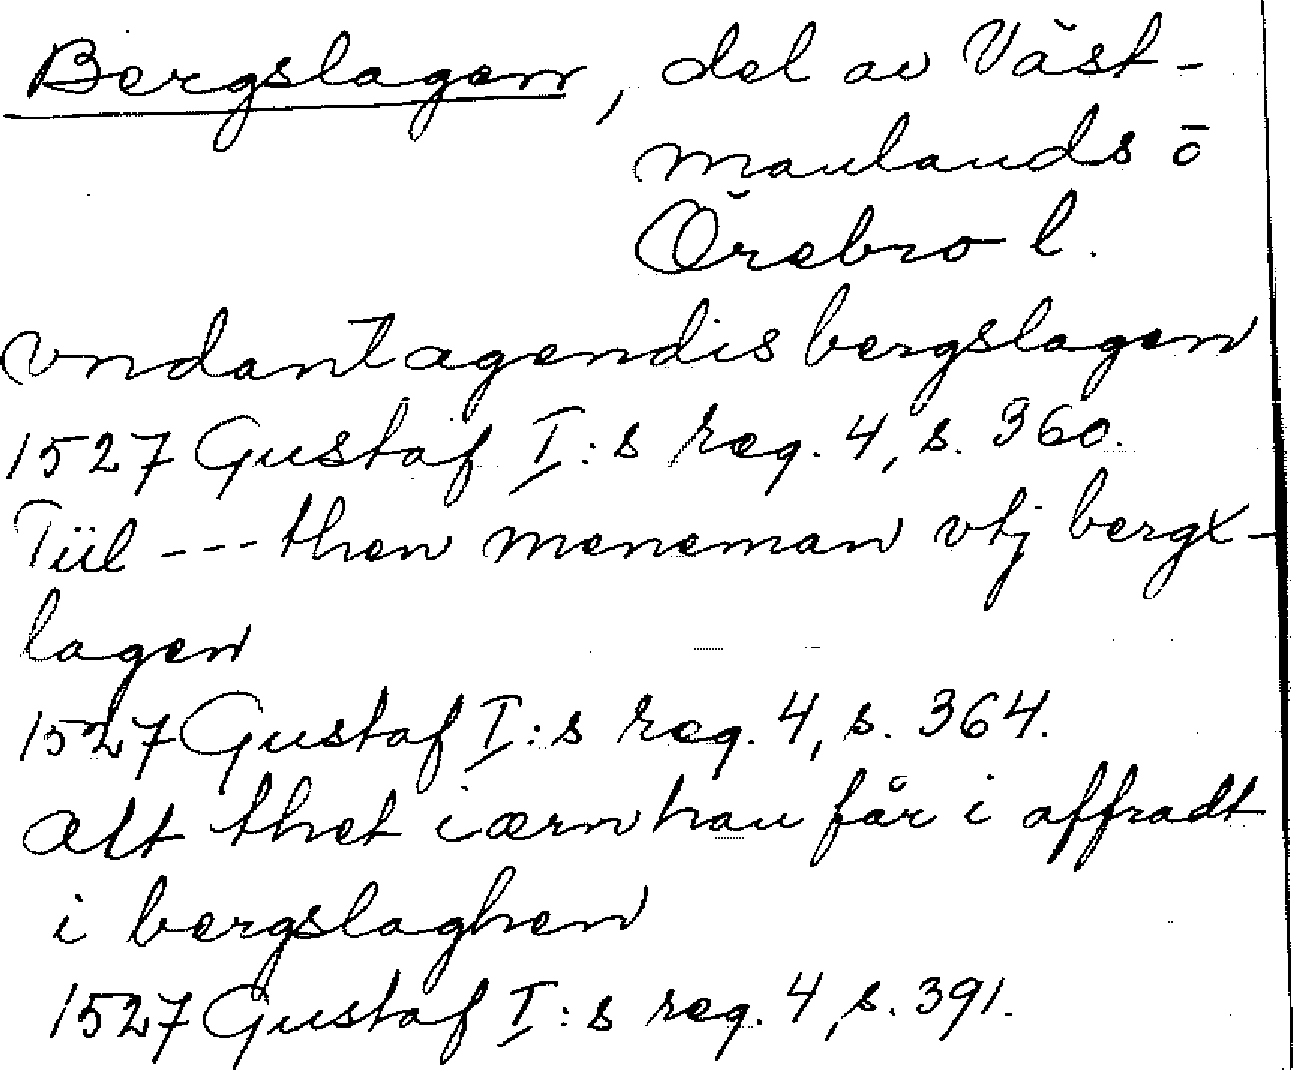 Bergslagen, del av Väst-
manlands o
Örebro l.
vndantagendis bergslagen
1527 Gustaf I:s reg. 4, s. 360.
Tiil --- then meneman vtj bergx-
lagen
1527 Gustaf I:s reg. 4, s. 364.
alt thet iærn han får i affradt
i bergslaghen
1527 Gustaf I:s reg. 4, s. 391.